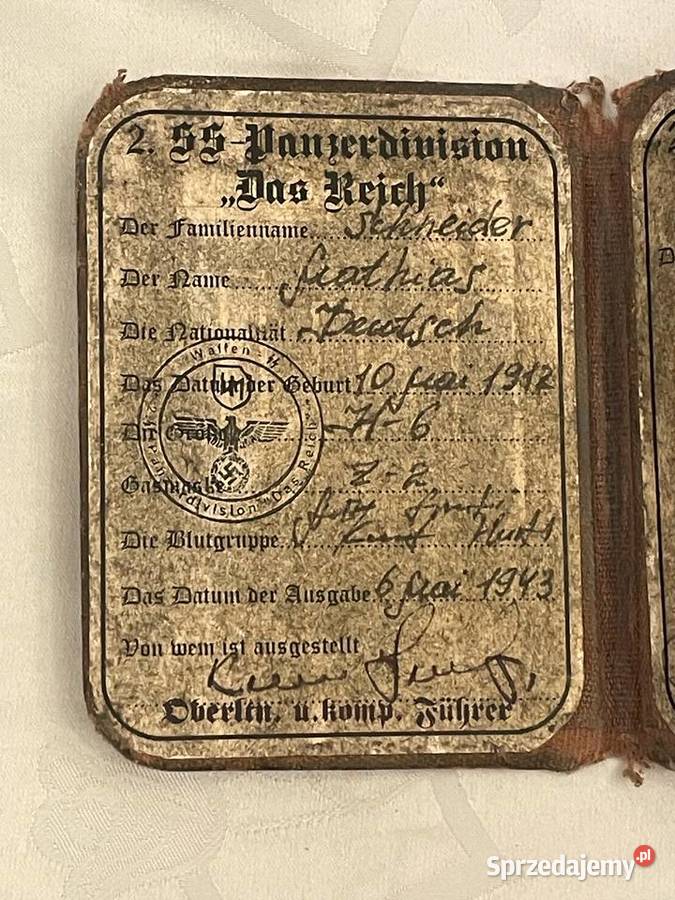 2. SS-Panzerdivision
„Das Reich“
Der Familienname Schneider
Der Name Mathias
Die Nationalität Deutsch
Das Datum der Geburt 10 Mai 1912
Die Größe H-6
Gasmaske Z-2
Die Blutgruppe
Das Datum der Ausgabe 6 Mai 1943
Von wem ist ausgestellt
Oberltn. u. komp. Führer
Waffen-SS
Panzerdivision "Das Reich"
Sprzedajemy.pl